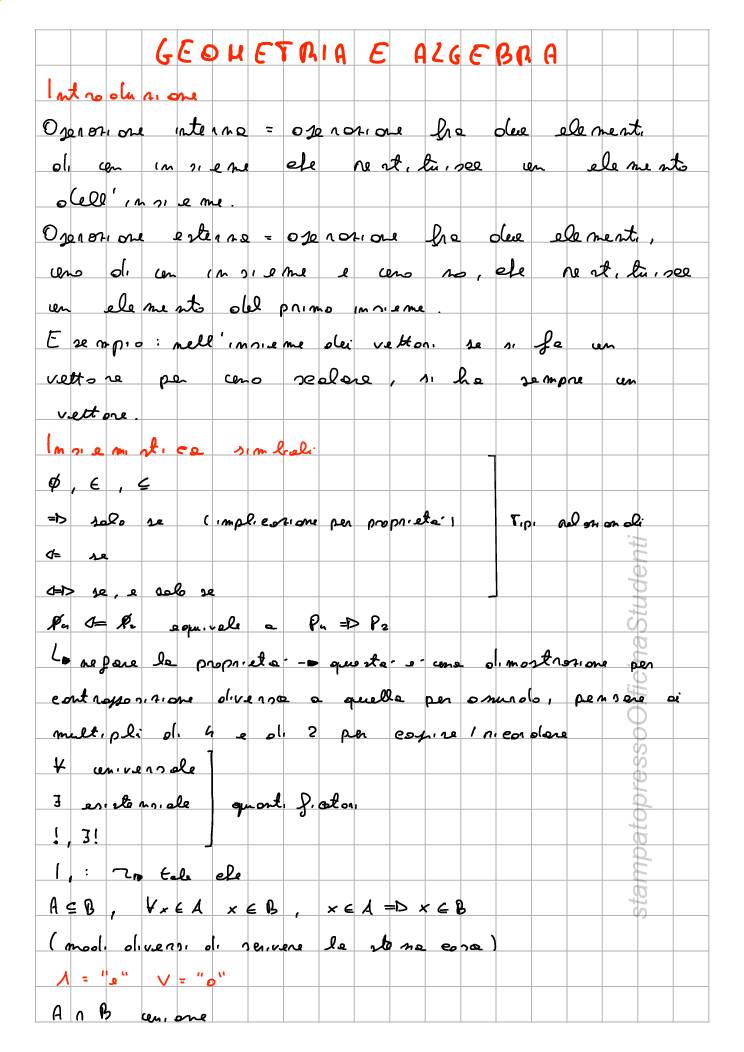 GEOMETRIA E ALGEBRA
Introduzione
Operazione interna = operazione fra due elementi
di un insieme che restituisce un elemento
dell'insieme.
Operazione esterna = operazione fra due elementi,
uno di un insieme e uno no, che restituisce
un elemento del primo insieme.
Esempio: nell'insieme dei vettori se si fa un
vettore per uno scalare, si ha sempre un
vettore.
Insiemistica simboli
∅, ∈, ⊆
=> solo se (implicazione per proprietà)
<= se
<=> se, e solo se
Tipi relazionali
P̸₁ <= P̸₂ equivale a P₁ => P₂
↳ negare la proprietà -> questa è una dimostrazione per
contrapposizione diversa a quella per assurdo, pensare ai
multipli di 4 e di 2 per capire / ricordare
∀ universale
∃ esistenziale
!, ∃!
quantificatori
|, : ~> tale che
A ⊆ B, ∀x ∈ A x ∈ B, x ∈ A => x ∈ B
(modi diversi di scrivere la stessa cosa)
∧ = "e" ∨ = "o"
A ∩ B unione
stampatopressoOfficinaStudenti